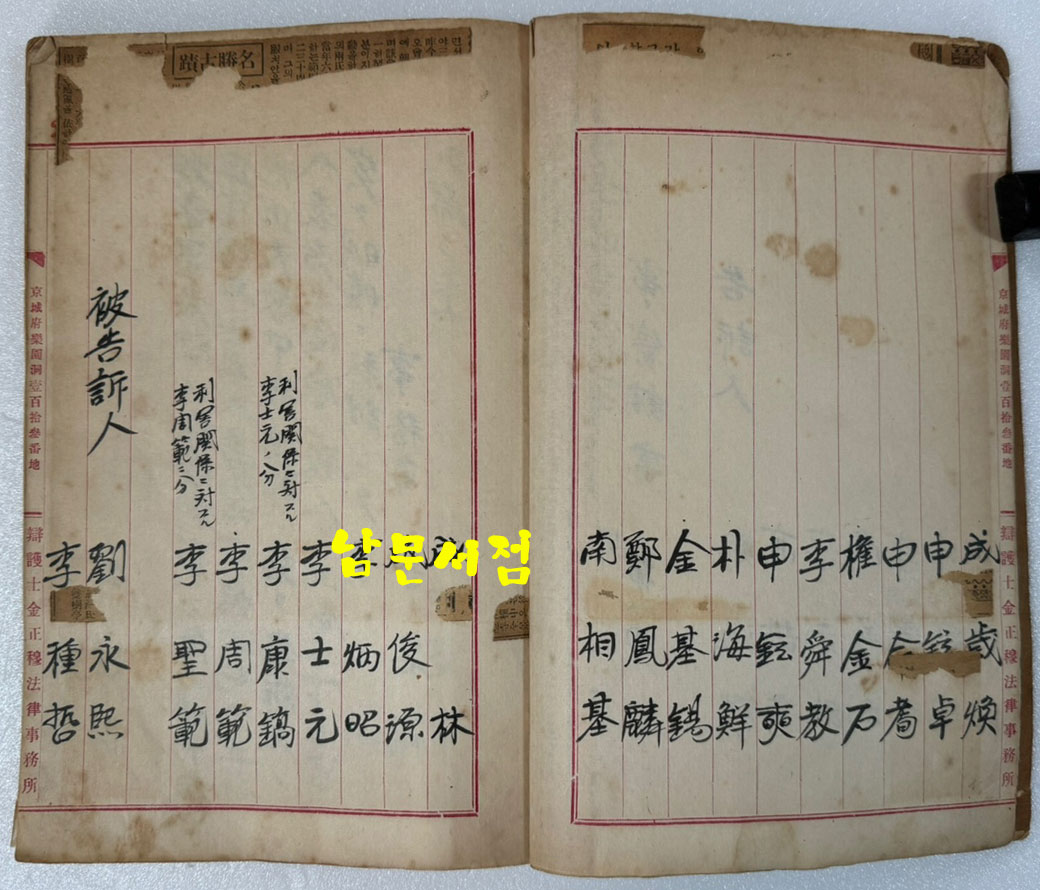 京城府樂園洞壹百拾參番地
辯護士金正穆法律事務所
成歲煥
申鉉卓
申
權金石
李舜教
申鉉奭
朴海鮮
金基錫
鄭鳳麟
南相基
林
俊源
李炳昭
李士元
利害関係ニ対スル
李士元ノ分
李康鎬
李周範
利害関係ニ対スル
李周範ニ分
李聖範
被告訴人 劉永熙
李種哲
京城府樂園洞壹百拾參番地
辯護士金正穆法律事務所
名勝古蹟
남문서점